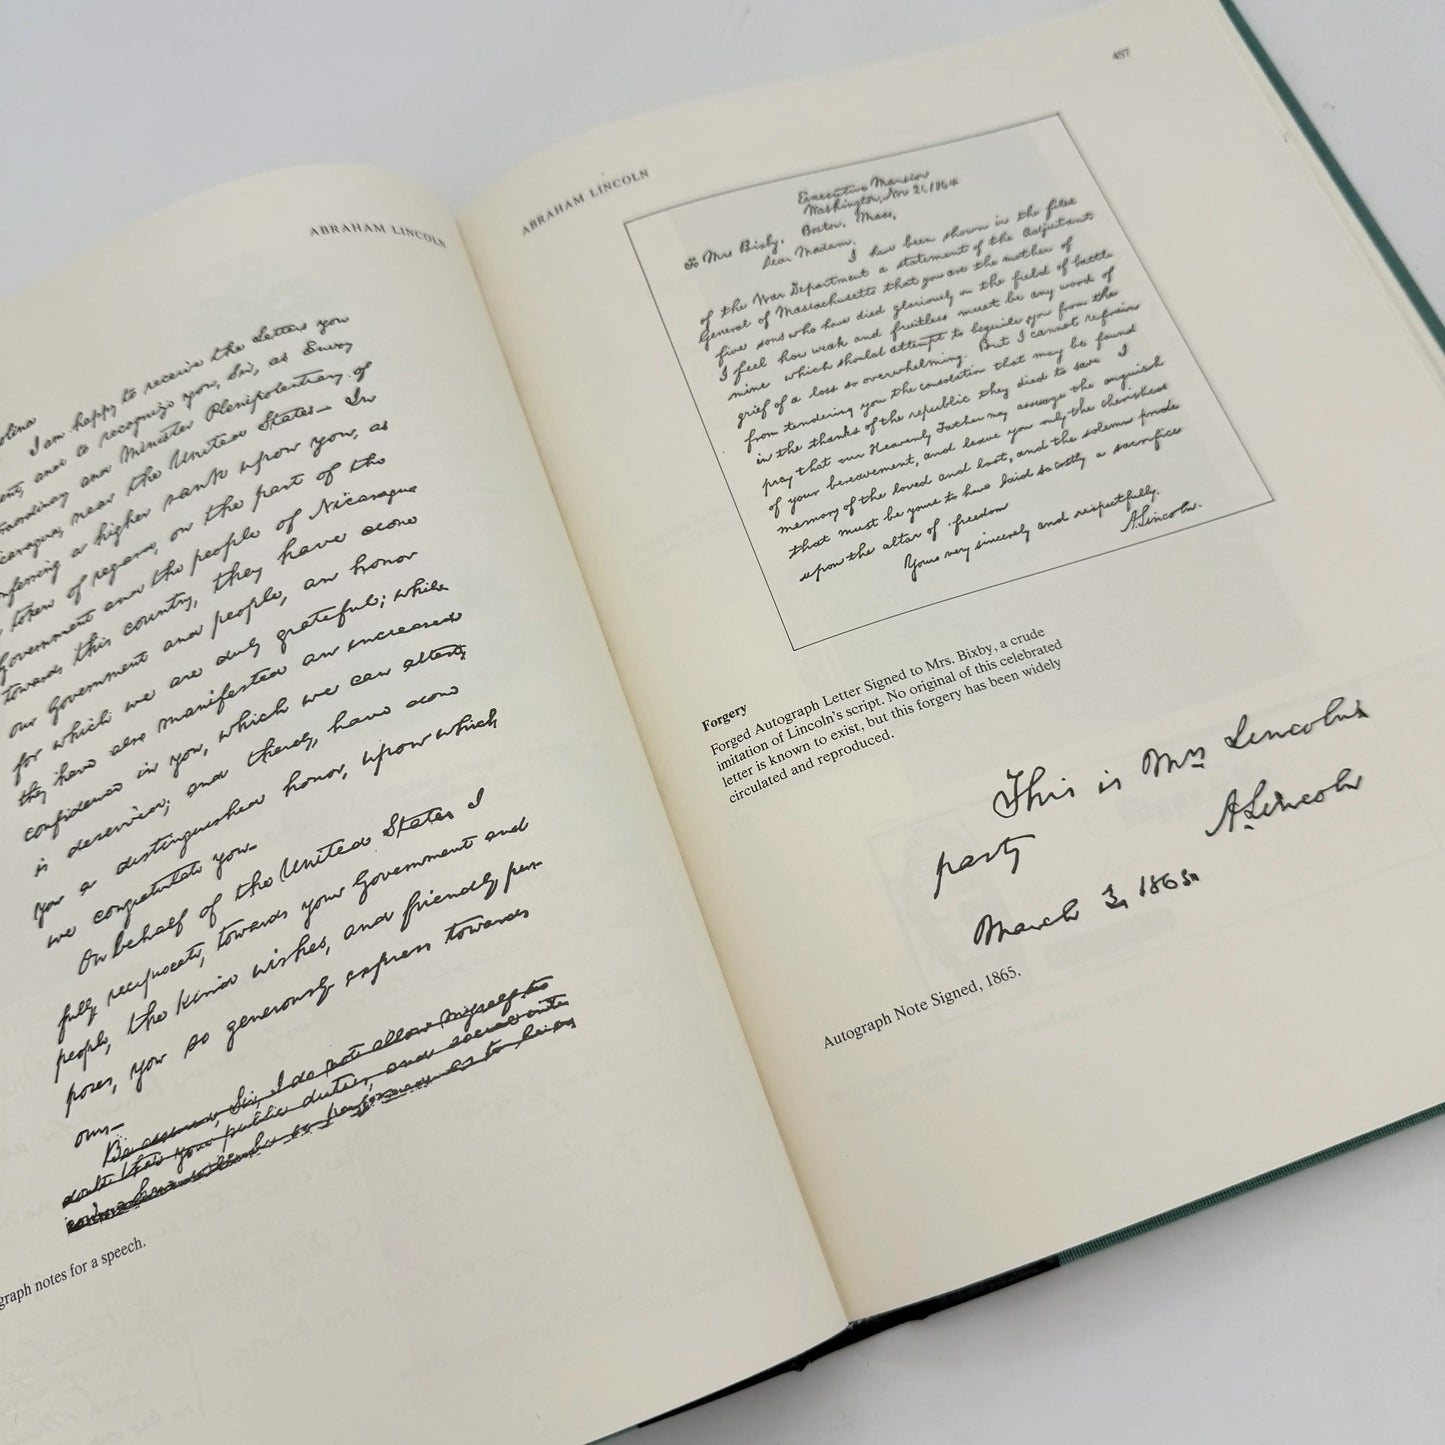 ABRAHAM LINCOLN
I am happy to receive the Letter you
and to recognize you, Sir, as Envoy
and Minister Plenipotentiary of
near the United States— In
a higher rank upon you, as
token of regard, on the part of the
Government and the people of Nicaragua
towards this country, they have done
our Government and people, an honor
for which we are duly grateful; while
they have also manifested an increased
confidence in you, which we can attest,
is deserved; and thereby, have done
you a distinguished honor, upon which
we congratulate you—
On behalf of the United States I
fully reciprocate, towards your Government and
people, the kind wishes, and friendly pur-
poses, you so generously express towards
ours—
Be assured, Sir, I do not allow myself to
doubt that your public duties, and social
graph notes for a speech.
ABRAHAM LINCOLN
457
Executive Mansion
Washington, Nov 21, 1864
To Mrs Bixby, Boston, Mass,
Dear Madam. I have been shown in the files
of the War Department a statement of the Adjutant
General of Massachusetts that you are the mother of
five sons who have died gloriously on the field of battle
I feel how weak and fruitless must be any word of
mine which should attempt to beguile you from the
grief of a loss so overwhelming. But I cannot refrain
from tendering you the consolation that may be found
in the thanks of the republic they died to save I
pray that our Heavenly Father may assuage the anguish
of your bereavement, and leave you only the cherished
memory of the loved and lost, and the solemn pride
that must be yours to have laid so costly a sacrifice
upon the altar of freedom
Yours very sincerely and respectfully.
A. Lincoln.
Forgery
Forged Autograph Letter Signed to Mrs. Bixby, a crude
imitation of Lincoln's script. No original of this celebrated
letter is known to exist, but this forgery has been widely
circulated and reproduced.
This is Mrs Lincoln's
party
A. Lincoln
March 3, 1865.
Autograph Note Signed, 1865.